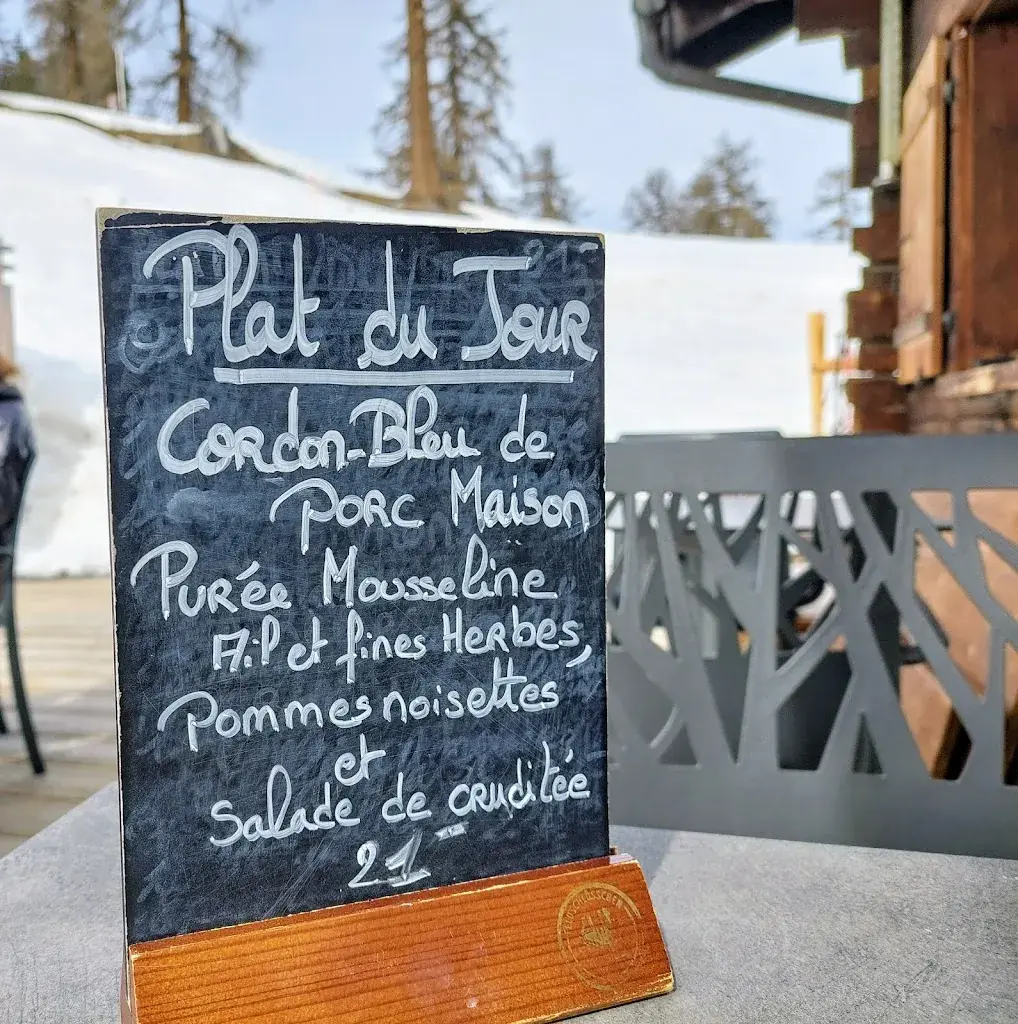 Plat du Jour
Cordon-Bleu de
porc Maison
Purée Mousseline
Ail et fines Herbes,
Pommes noisettes
et
Salade de cruditée
21.-